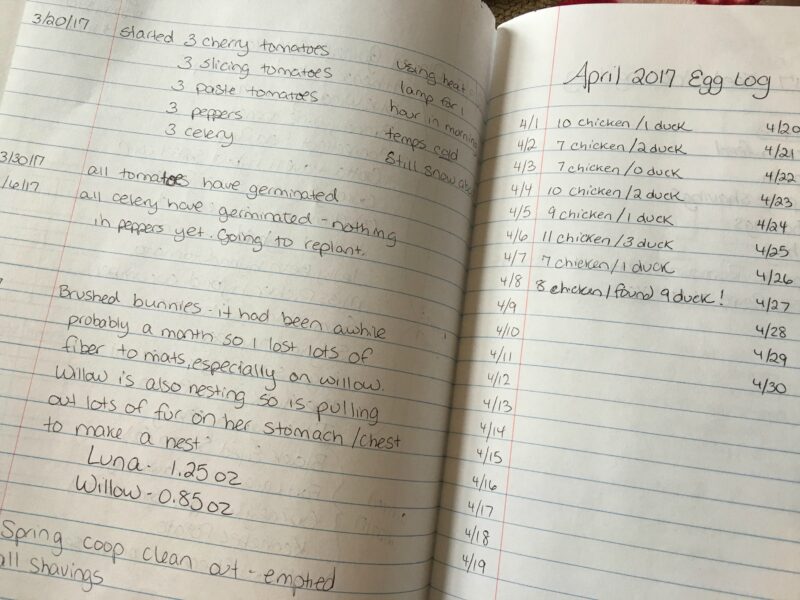 3/20/17 started 3 cherry tomatoes
3 slicing tomatoes
3 paste tomatoes
3 peppers
3 celery
using heat
lamp for 1
hour in morning
temps cold
Still snow
3/30/17 all tomatoes have germinated
/6/17 all celery have germinated - nothing
in peppers yet. Going to replant.
Brushed bunnies - it had been awhile
probably a month so I lost lots of
fiber to mats, especially on willow.
Willow is also nesting so is pulling
out lots of fur on her stomach/chest
to make a nest.
Luna - 1.25 oz
Willow - 0.85 oz
Spring coop clean out - emptied
all shavings
April 2017 Egg Log
4/1 10 chicken/1 duck
4/2 7 chicken/2 duck
4/3 7 chicken/0 duck
4/4 10 chicken/2 duck
4/5 9 chicken/1 duck
4/6 11 chicken/3 duck
4/7 7 chicken/1 duck
4/8 8 chicken/found 9 duck!
4/9
4/10
4/11
4/12
4/13
4/14
4/15
4/16
4/17
4/18
4/19
4/20
4/21
4/22
4/23
4/24
4/25
4/26
4/27
4/28
4/29
4/30